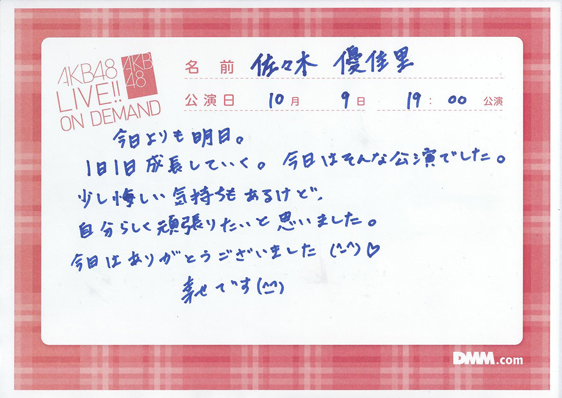 AKB48
LIVE!!
ON DEMAND
AKB
48
名前 佐々木 優佳里
公演日 10月 9日 19:00 公演
今日よりも明日。
1日1日成長していく。 今日はそんな公演でした。
少し悔しい気持ちもあるけど、
自分らしく頑張りたいと思いました。
今日はありがとうございました (^-^)♡
幸せです(^-^)
DMM.com